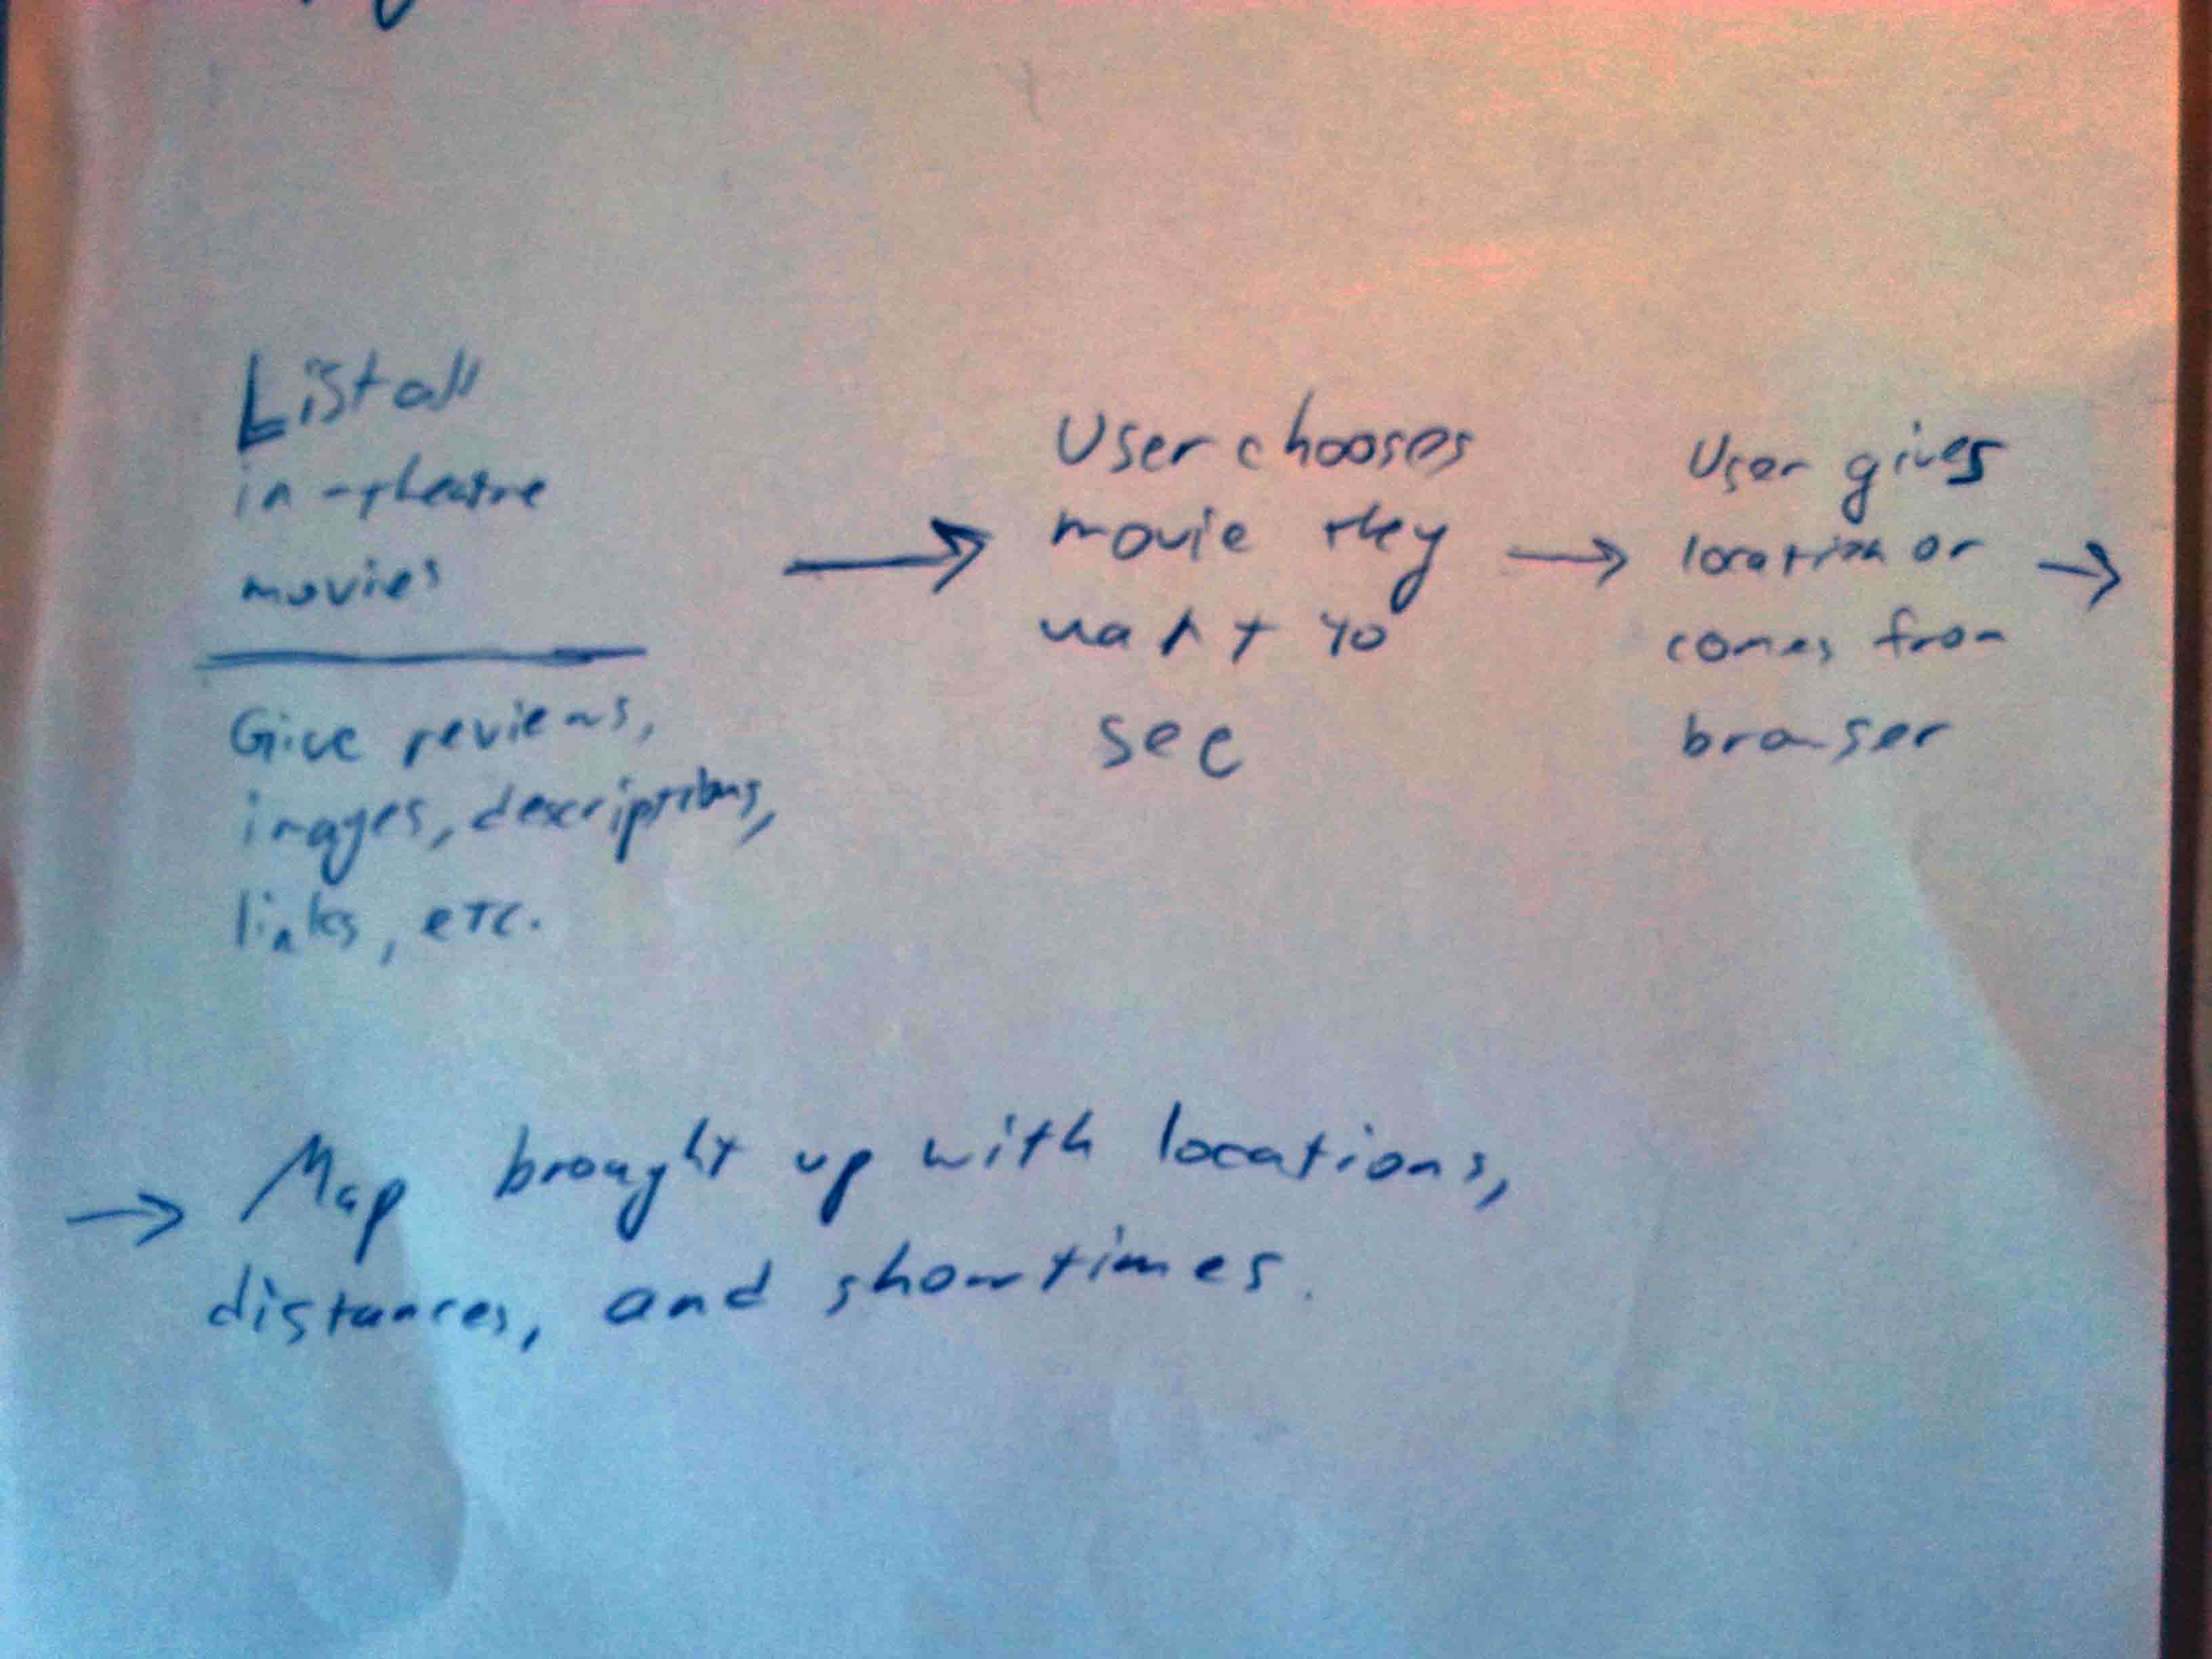 List all
in-theatre
movies
Give reviews,
images, descriptions,
links, etc.
User chooses
movie they
want to
see
User gives
location or
comes from
browser
Map brought up with locations,
distances, and showtimes.